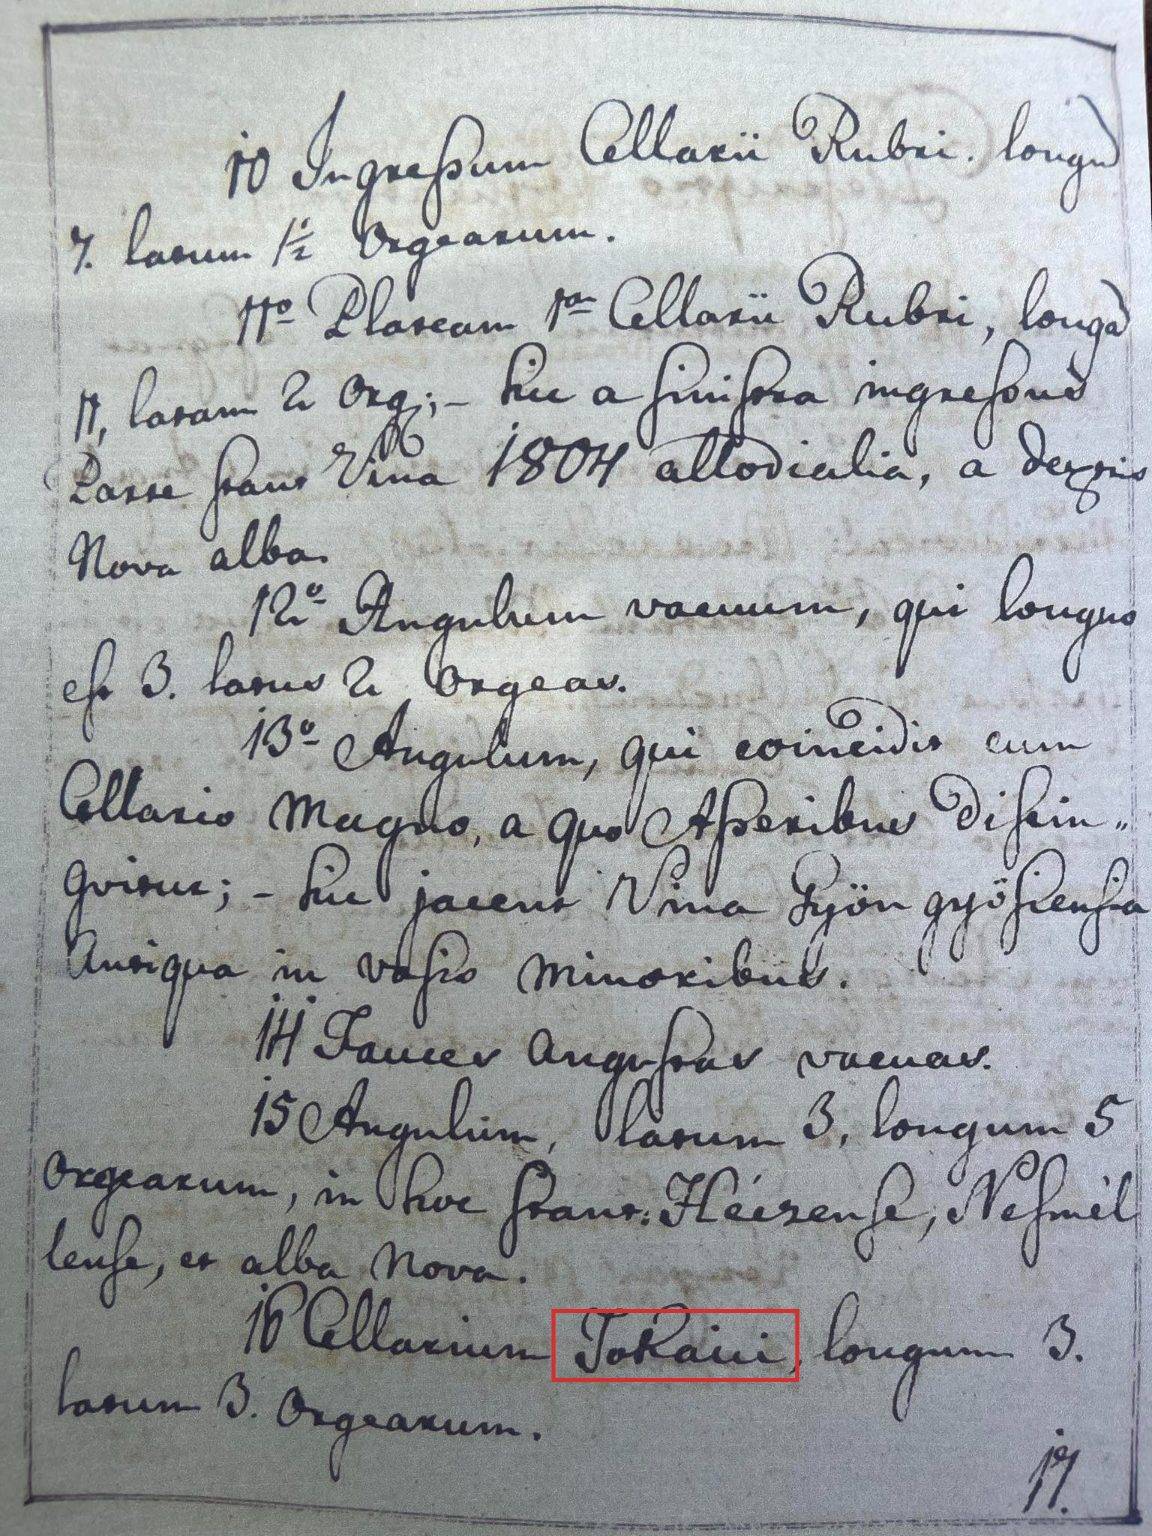 10 Ingressum Cellarii Rubri. longū
7. latum 1½ Orgearum.
11º Plateam 1am Cellarii Rubri, longā
11, latam 2 Org; – hic a sinistra ingressus
Parte stant Vina 1804 allodialia, a dextris
Nova alba.
12º Angulum vacuum, qui longus
est 3. latus 2 Orgeas.
13º Angulum, qui coincidit cum
Cellario Magno, a quo Asseribus distin„
gvitur; – hic jacent Vina Gyöngyösiensia
Antiqua in vasis minoribus.
14 Fauces Angustas vacuas.
15 Angulum, latum 3, longum 5
Orgearum, in hoc stant: Héczense, Nesmél
lense, et alba Nova.
16 Cellarium Tokaiui, longum 3.
latum 3. Orgearum.
17.